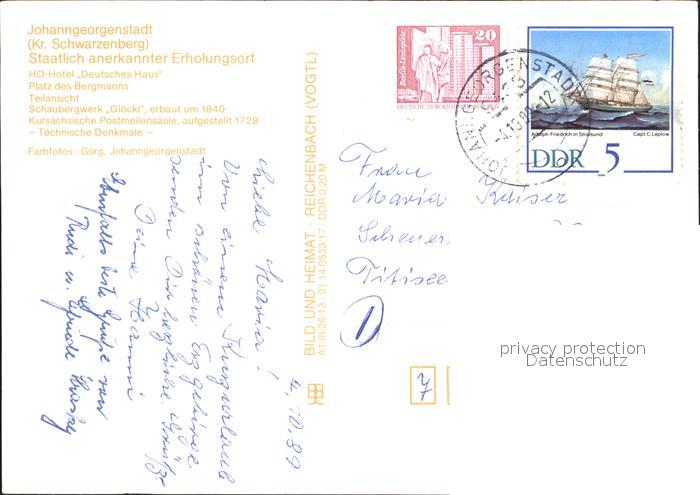 Johanngeorgenstadt
(Kr. Schwarzenberg)
Staatlich anerkannter Erholungsort
HO-Hotel „Deutsches Haus"
Platz des Bergmanns
Teilansicht
Schaubergwerk „Glöckl", erbaut um 1840
Kursächsische Postmeilensäule, aufgestellt 1728
– Technische Denkmale –
Farbfotos: Görg, Johanngeorgenstadt
BILD UND HEIMAT · REICHENBACH (VOGTL)
A1/III/26-13 01 14 0533/17 DDR 0,20 M
20
JOHANNGEORGENSTADT
Adolph Friedrich in Stralsund
Capt. C. Leplow
DDR 5
4.10.89
Liebe Maria!
Von einem Kurzurlaub
im schönen Erzgebirge
senden Dir herzliche Grüße
Deine Hanni
Ebenfalls beste Grüße von
Rudi u.
Frau
Maria Kaiser
Scheuer
Titisee
1
7
privacy protection
Datenschutz